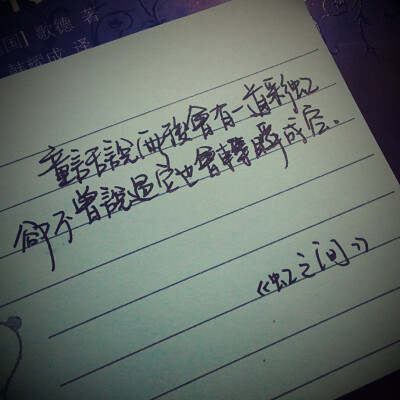 国] 歌德 著
韩耀成 译
童話說雨後會有一道彩虹
卻不曾說過它也會轉瞬成空.
《虹之间》